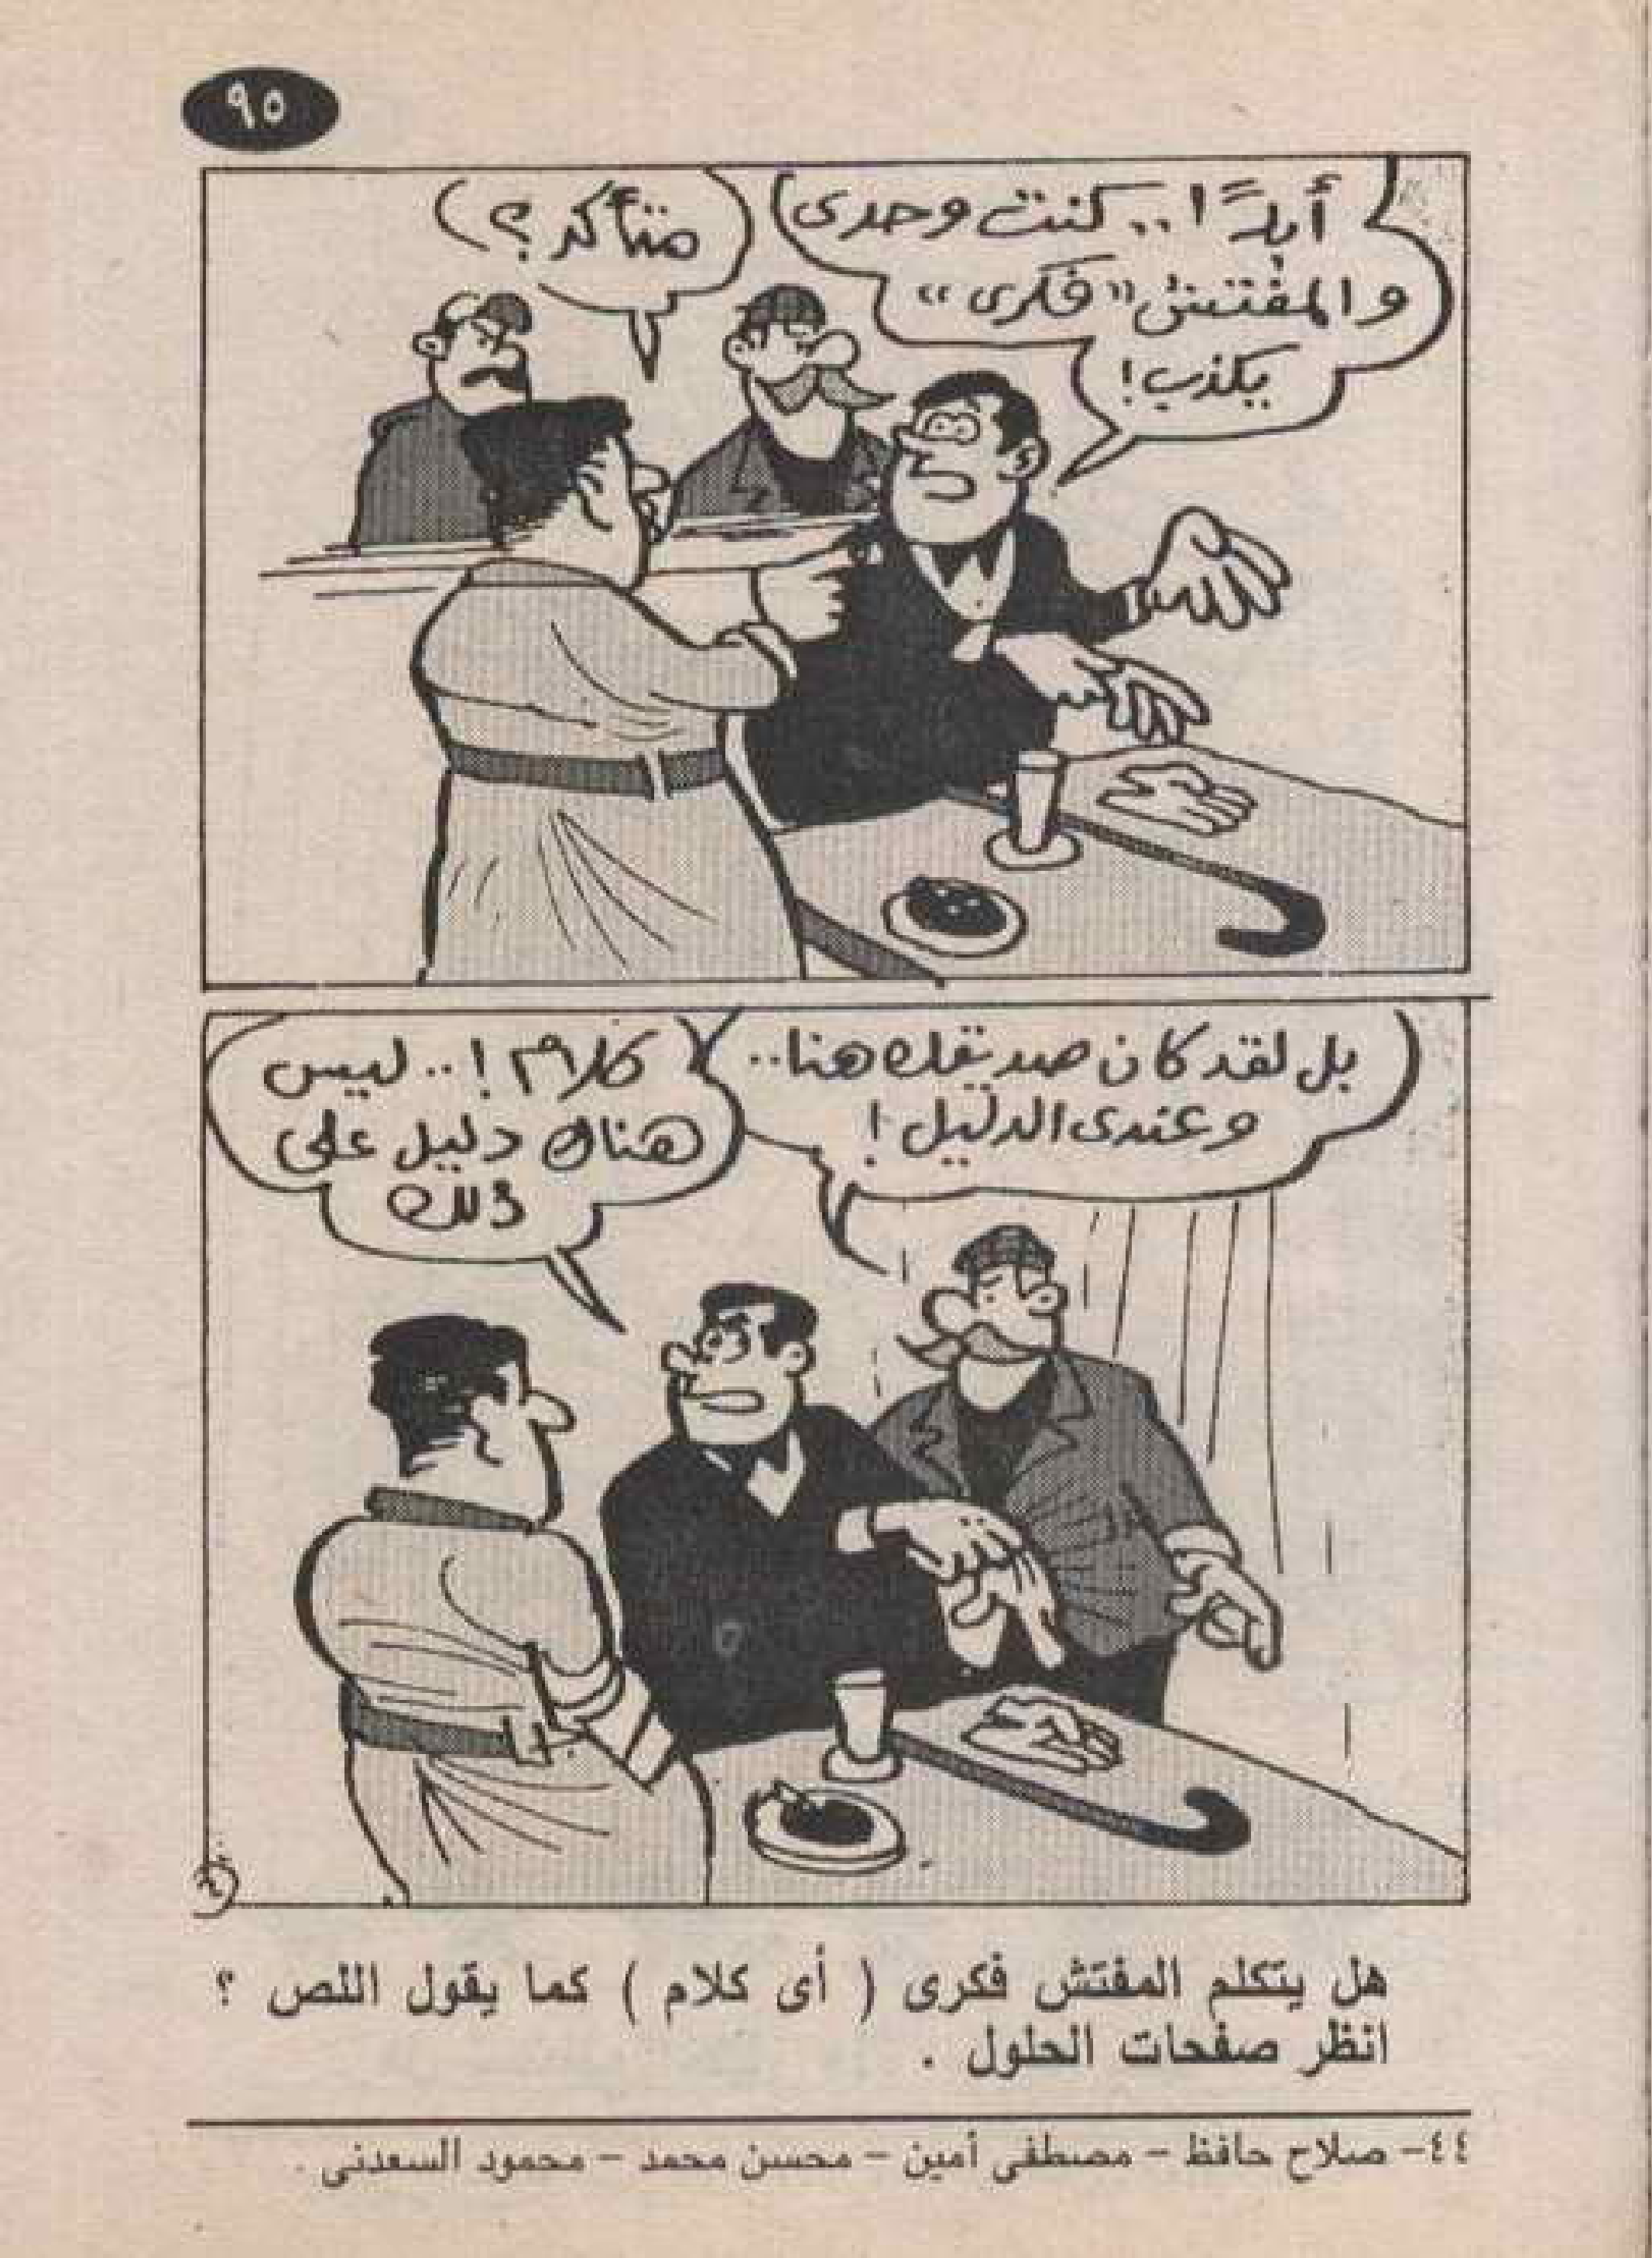 ٩٥
أبدًا.. كنت وحدى
والمفتش "فكرى"
يكذب!
متأكد؟
بل لقد كان صديقك هنا..
وعندى الدليل!
كلام!.. ليس
هناك دليل على
ذلك
هل يتكلم المفتش فكرى ( أى كلام ) كما يقول اللص ؟
انظر صفحات الحلول .
٤٤- صلاح حافظ - مصطفى أمين - محسن محمد - محمود السعدنى .